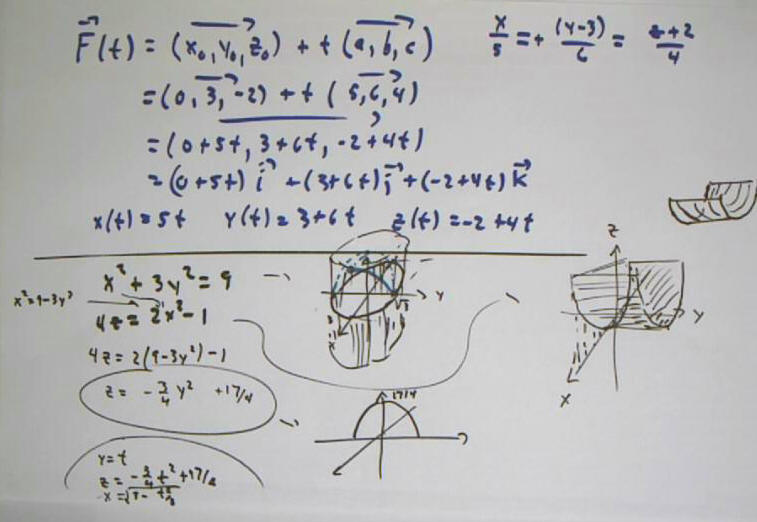 F⃗(t) = (x₀, y₀, z₀) + t (a, b, c)
x/5 = t (y-3)/6 = z+2/4
= (0, 3, -2) + t (5, 6, 4)
= (0+5t, 3+6t, -2+4t)
= (0+5t) i⃗ + (3+6t) j⃗ + (-2+4t) k⃗
x(t) = 5t y(t) = 3+6t z(t) = -2+4t
x² + 3y² = 9
x² = 9-3y²
4z = 2x² - 1
4z = 2(9-3y²) - 1
z = -3/4 y² + 17/4
y = t
y
x
z
y
x
17/4